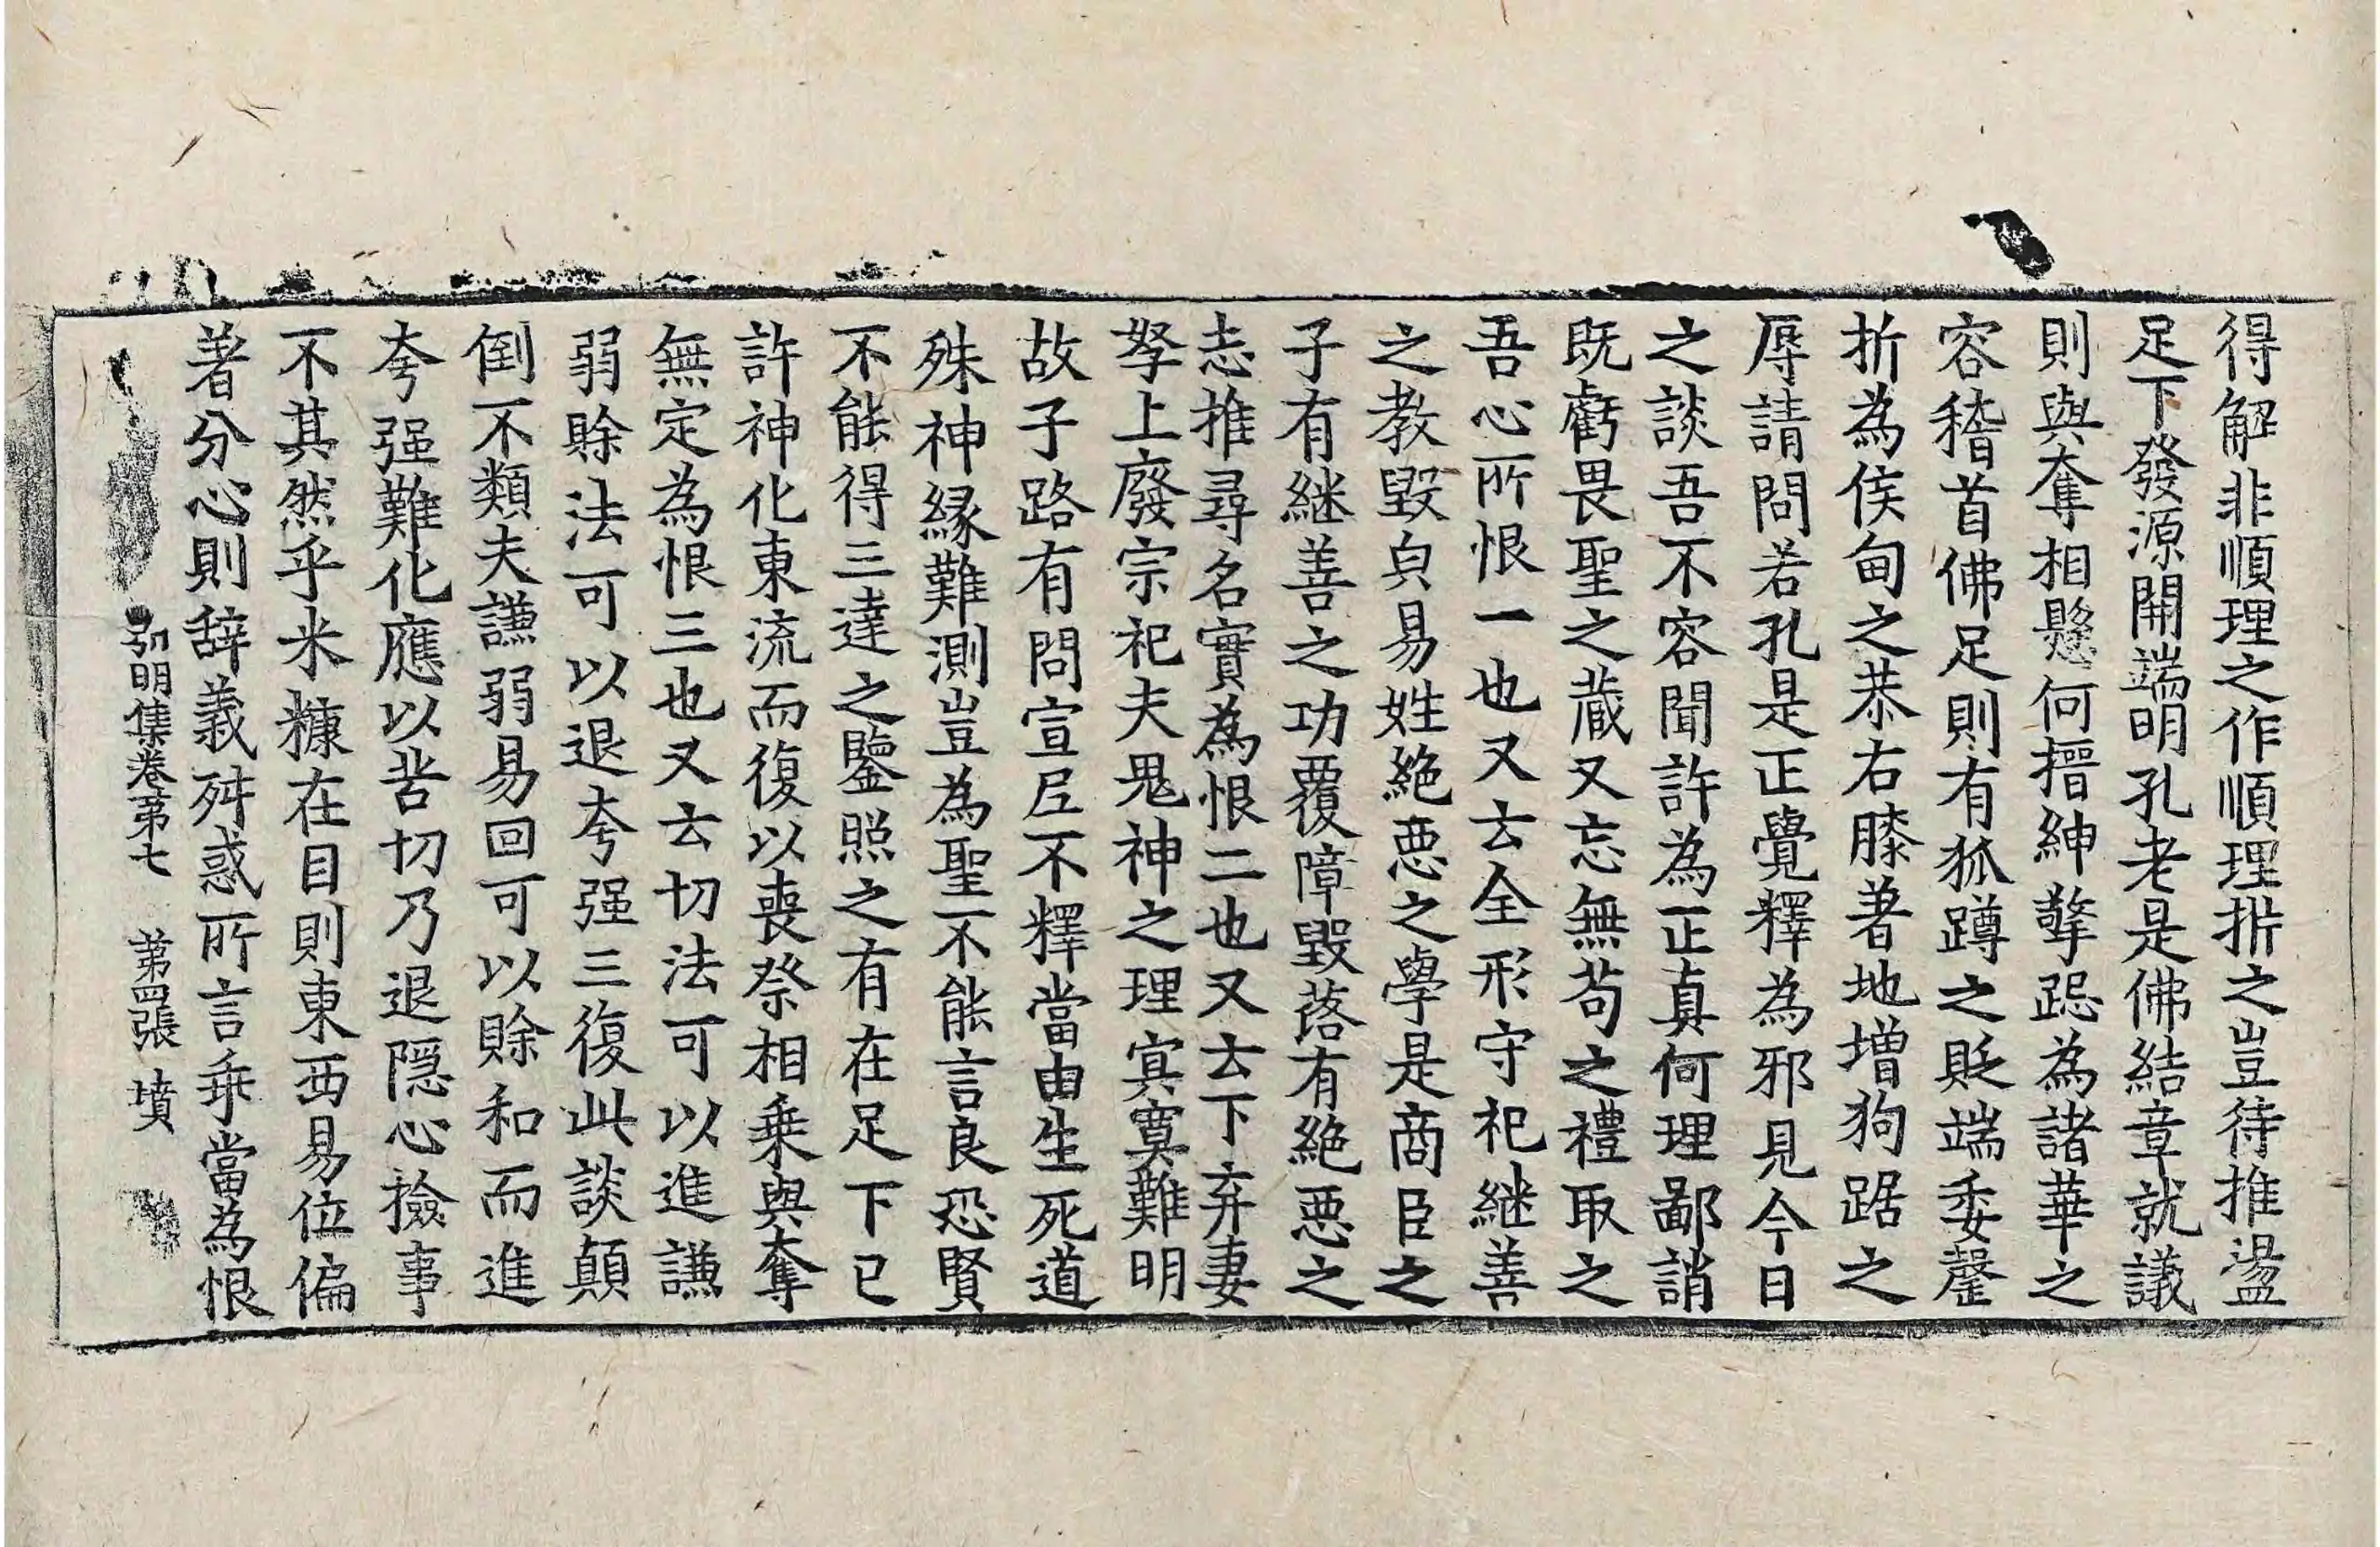 得解非順理之作順理折之豈待推盪
足下發源開端明孔老是佛結章就議
則與奪相懸何搢紳擎跽為諸華之
容稽首佛足則有狐蹲之貶端委罄
折為侯甸之恭右膝著地增狗踞之
辱請問若孔是正覺釋為邪見今日
之談吾不容聞許為正真何理鄙誚
既虧畏聖之蔵又忘無苟之禮取之
吾心所恨一也又云全形守祀継善
之教毀皃易姓絶悪之學是商臣之
子有継善之功覆障毀落有絶悪之
志推尋名實為恨二也又云下弃妻
孥上廢宗祀夫鬼神之理冥寞難明
故子路有問宣尼不釋當由生死道
殊神縁難測豈為聖不能言良恐賢
不能得三達之鑒照之有在足下已
許神化東流而復以喪祭相乗與奪
無定為恨三也又云切法可以進謙
弱賒法可以退夸强三復此談顛
倒不類夫謙弱易回可以賒和而進
夸强難化應以苦切乃退隠心撿事
不其然乎米糠在目則東西易位偏
著分心則辞義舛惑所言乖當為恨
弘明集卷第七 第四張 墳